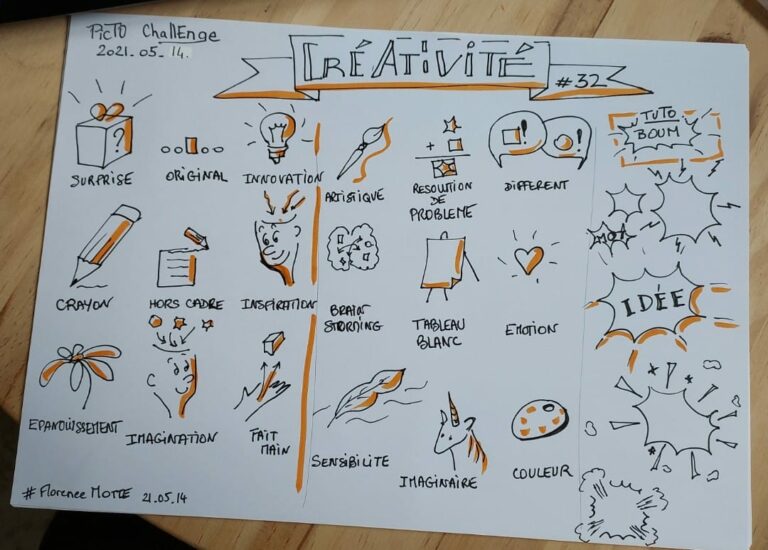 PICTO Challenge
2021.05.14.
CRÉATIVITÉ
#32
?
SURPRISE
ORIGINAL
INNOVATION
ARTISTIQUE
+
RESOLUTION
DE
PROBLEME
! !
DIFFERENT
TUTO
BOUM
CRAYON
HORS CADRE
INSPIRATION
BRAIN
STORNING
TABLEAU
BLANC
EMOTION
MOT
IDÉE
EPANOUISSEMENT
IMAGINATION
FAIT
MAIN
SENSIBILITE
IMAGINAIRE
COULEUR
# Florence MOTTE 21.05.14